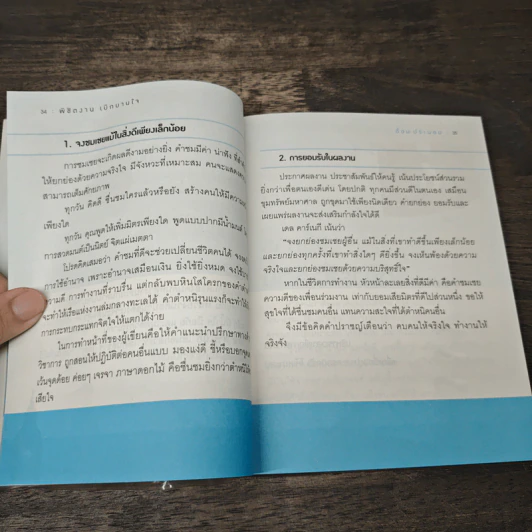 34 พิชิตงาน เบิกบานใจ
1. จงชมเชยแม้ในสิ่งดีเพียงเล็กน้อย
การชมเชยจะเกิดผลดีงามอย่างยิ่ง คำชมมีค่า น่าฟัง
ให้ยกย่องด้วยความจริงใจ มีจังหวะที่เหมาะสม คนจะแสดง
สามารถเต็มศักยภาพ
ทุกวัน คิดดี ชื่นชมใครแล้วหรือยัง สร้างคนให้มีความ
เพียงใด
ทุกวัน คุณพูดให้เพิ่มมิตรเพียงใด พูดแบบปากมีน้ำมนต์
การสวดมนต์เป็นนิตย์ จิตแผ่เมตตา
โปรดคิดเสมอว่า คำชมที่ดีจะช่วยเปลี่ยนชีวิตคนได้
การใช้อำนาจ เพราะอำนาจเสมือนเงิน ยิ่งใช้ยิ่งหมด จงใช้
ความดี การทำงานที่ราบรื่น แต่กลับพบหินโสโครกของคำ
จะทำให้เรือแห่งงานล่มกลางทะเลได้ คำตำหนิรุนแรงก็จะทำให้
การกระทบกระแทกจิตใจให้แตกได้ง่าย
ในการทำหน้าที่ของผู้เขียนคือให้คำแนะนำปรึกษาทาง
วิชาการ ถูกสอนให้ปฏิบัติต่อคนอื่นแบบ มองแง่ดี ชี้หรือบอกจุด
เว้นจุดด้อย ค่อยๆ เจรจา ภาษาดอกไม้ คือชื่นชมยิ่งกว่าตำหนิให้
เสียใจ
2. การยอมรับในผลงาน
ประกาศผลงาน ประชาสัมพันธ์ให้คนรู้ เน้นประโยชน์ส่วนรวม
ยิ่งกว่าเพื่อตนเองดีเด่น โดยปกติ ทุกคนมีส่วนดีในตนเอง เสมือน
ขุมทรัพย์มหาศาล ถูกขุดมาใช้เพียงนิดเดียว คำยกย่อง ยอมรับและ
เผยแพร่ผลงานจะส่งเสริมกำลังใจได้ดี
เดล คาร์เนกี เน้นว่า
“จงยกย่องชมเชยผู้อื่น แม้ในสิ่งที่เขาทำดีขึ้นเพียงเล็กน้อย
และยกย่องทุกครั้งที่เขาทำสิ่งใดๆ ดียิ่งขึ้น จงเห็นพ้องด้วยความ
จริงใจและยกย่องชมเชยด้วยความบริสุทธิ์ใจ”
หากในชีวิตการทำงาน หัวหน้าละเลยสิ่งที่ดีมีค่า คือคำชมเชย
ความดีของเพื่อนร่วมงาน เท่ากับยอมเสียมิตรที่ดีไปส่วนหนึ่ง ขอให้
สุขใจที่ได้ชื่นชมคนอื่น แทนความสะใจที่ได้ตำหนิคนอื่น
จึงมีข้อคิดคำปราชญ์เตือนว่า คบคนให้จริงใจ ทำงานให้
จริงจัง